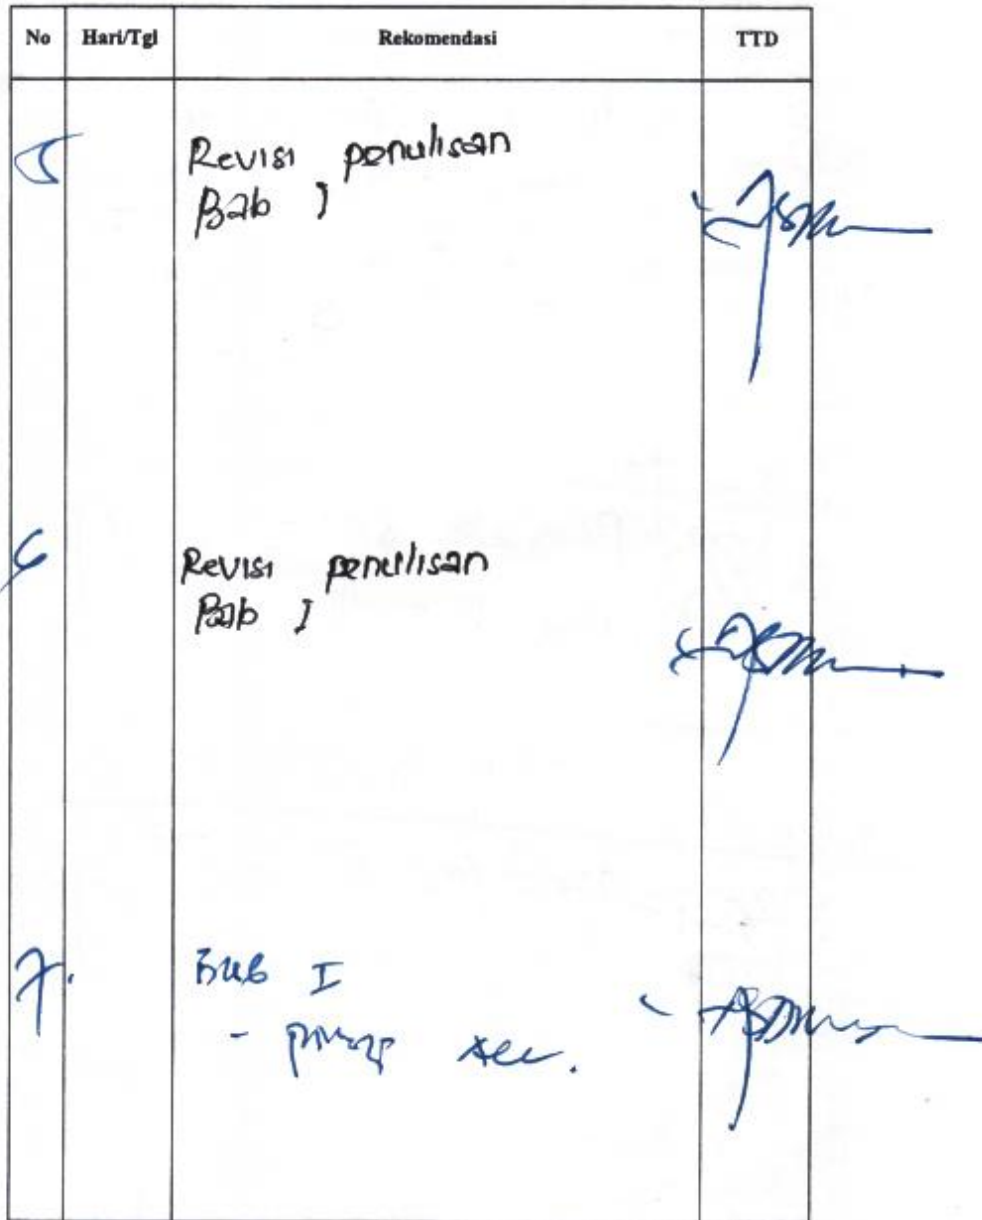 No Hari/Tgl Rekomendasi TTD
5 Revisi penulisan
Bab I
6 Revisi penulisan
Bab I
7. Bab I
- prinsip acc.